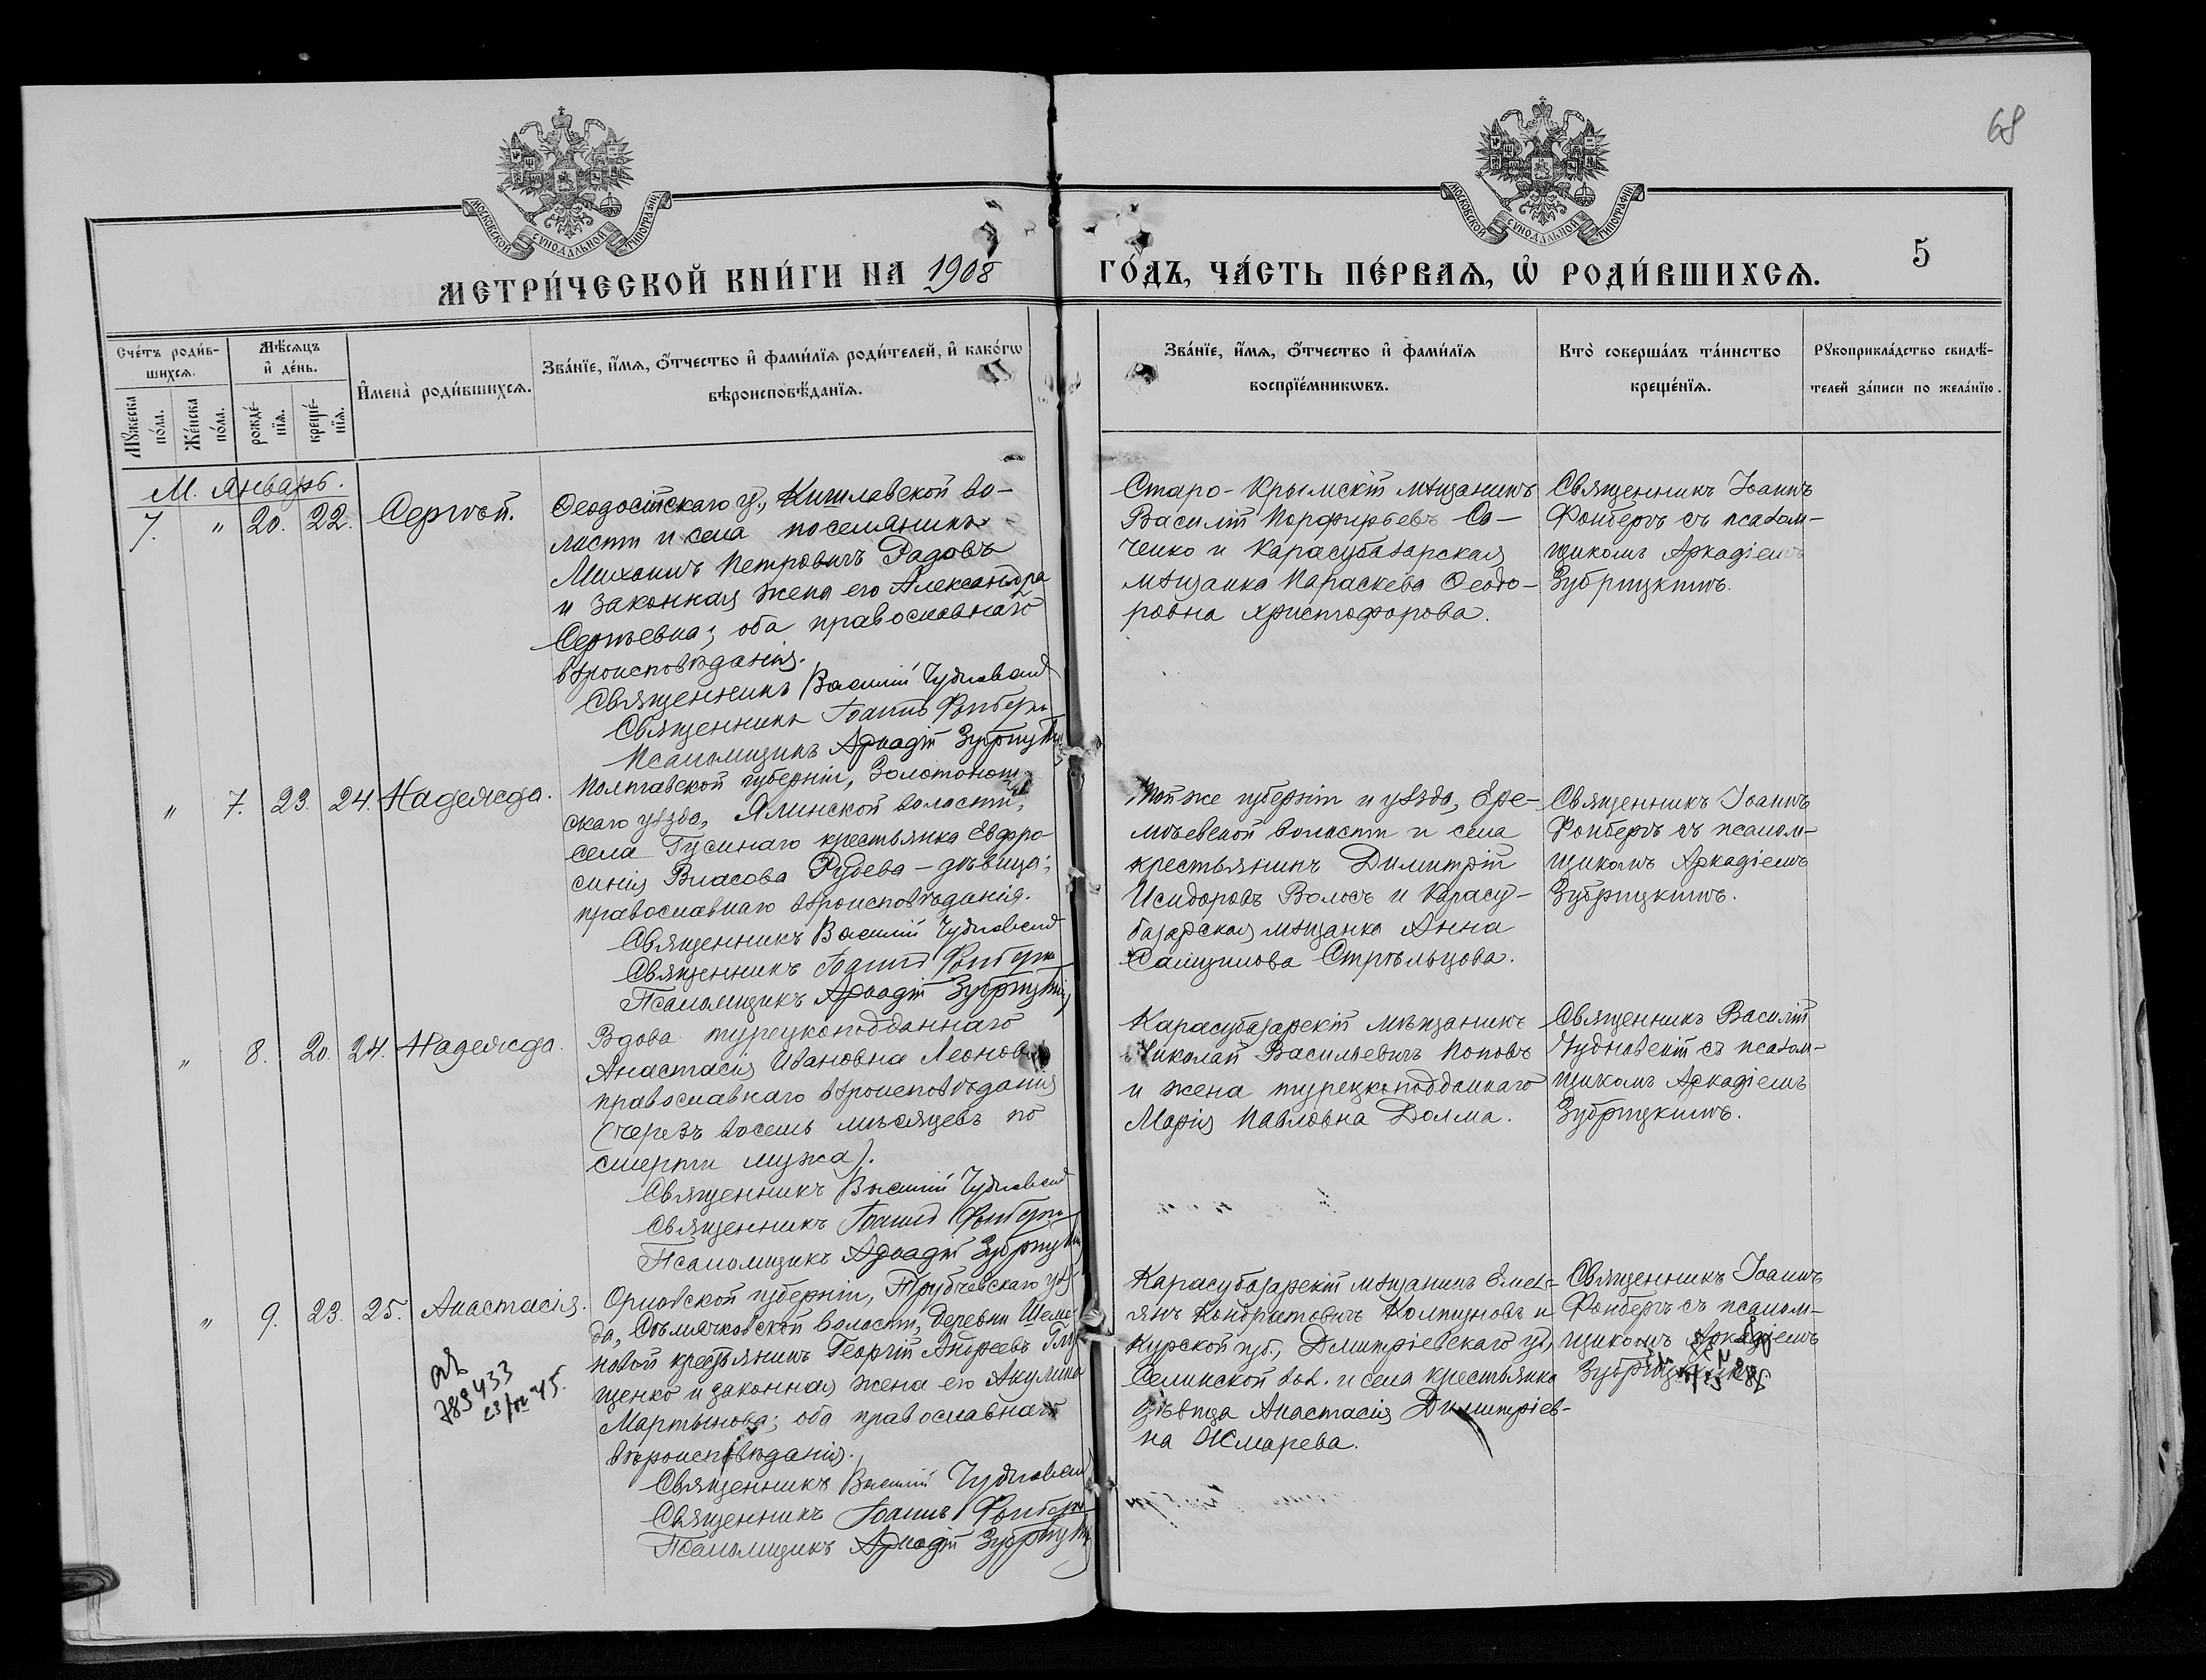 68
МОСКОВСКОЙ СѴНОДАЛЬНОЙ ТИПОГРАФІИ
МОСКОВСКОЙ СѴНОДАЛЬНОЙ ТИПОГРАФІИ
МЕТРИ́ЧЕСКОЙ КНИ́ГИ НА 1908
ГО́ДЪ, ЧА́СТЬ ПЕ́РВАѦ, Ѡ҆ РОДИ́ВШИХСѦ.
5
Сче́тъ роди́в-
шихсѧ.
Мꙋ́жеска по́ла.
Же́нска по́ла.
Мѣ́сѧцъ
и҆ де́нь.
рожде́-
нїѧ.
креще́-
нїѧ.
И҆мена̀ роди́вшихсѧ.
Зва́нїе, и҆́мѧ, ѻ҆́тчество и҆ фами́лїѧ роди́телей, и҆ како́гѡ
вѣроисповѣ́данїѧ.
Зва́нїе, и҆́мѧ, ѻ҆́тчество и҆ фами́лїѧ
воспрїе́мникѡвъ.
Кто̀ соверша́лъ та́инство
креще́нїѧ.
Рꙋкоприкла́дство свидѣ́-
телей за́писи по жела́нїю.
М. Январь.
7. " 20. 22. Сергѣй.
Ѳеодосійскаго у., Кишлавской во-
лости и села поселянинъ
Михаилъ Петровичъ Радовъ
и законная жена его Александра
Сергѣевна; оба православнаго
вѣроисповѣданія.
Священникъ Василій Чудновскій
Священникъ Іоаннъ Фонбергъ
Псаломщикъ Аркадій Зубрицкій
Старо-Крымскій мѣщанинъ
Василій Порфирьевъ Со-
ченко и Карасубазарская
мѣщанка Параскева Ѳеодо-
ровна Христофорова.
Священникъ Іоаннъ
Фонбергъ съ псалом-
щикомъ Аркадіемъ
Зубрицкимъ.
" 7. 23. 24. Надежда.
Полтавской губерніи, Золотонош-
скаго уѣзда, Ялинской волости,
села Гусинаго крестьянка Евфро-
синія Власова Рудева - дѣвица;
православнаго вѣроисповѣданія.
Священникъ Василій Чудновскій
Священникъ Іоаннъ Фонбергъ
Псаломщикъ Аркадій Зубрицкій
Той же губерніи и уѣзда, Ере-
мѣевской волости и села
крестьянинъ Димитрій
Исидоровъ Волосъ и Карасу-
базарская мѣщанка Анна
Стрѣльцова.
Священникъ Іоаннъ
Фонбергъ съ псалом-
щикомъ Аркадіемъ
Зубрицкимъ.
" 8. 20. 24. Надежда.
Вдова турецкоподданнаго
Анастасія Ивановна Леонова
православнаго вѣроисповѣданія
(черезъ восемь мѣсяцевъ по
смерти мужа).
Священникъ Василій Чудновскій
Священникъ Іоаннъ Фонбергъ
Псаломщикъ Аркадій Зубрицкій
Карасубазарскій мѣщанинъ
Николай Васильевичъ Поповъ
и жена турецкоподданнаго
Марія Павловна Долма.
Священникъ Василій
Чудновскій съ псалом-
щикомъ Аркадіемъ
Зубрицкимъ.
" 9. 23. 25. Анастасія.
Орловской губерніи, Трубчевскаго уѣз-
да, волости, деревни
крестьянинъ Георгій Андреевъ Гла-
щенко и законная жена его Акулина
Мартынова; оба православнаго
вѣроисповѣданія.
Священникъ Василій Чудновскій
Священникъ Іоаннъ Фонбергъ
Псаломщикъ Аркадій Зубрицкій
Карасубазарскій мѣщанинъ Емель-
янъ Кондратовичъ Колтуновъ и
Курской губ., Дмитріевскаго у.,
Селинской вол. и села крестьянка
дѣвица Анастасія Димитріев-
на Жмарева.
Священникъ Іоаннъ
Фонбергъ съ псалом-
щикомъ Аркадіемъ
Зубрицкимъ.
789433
45.